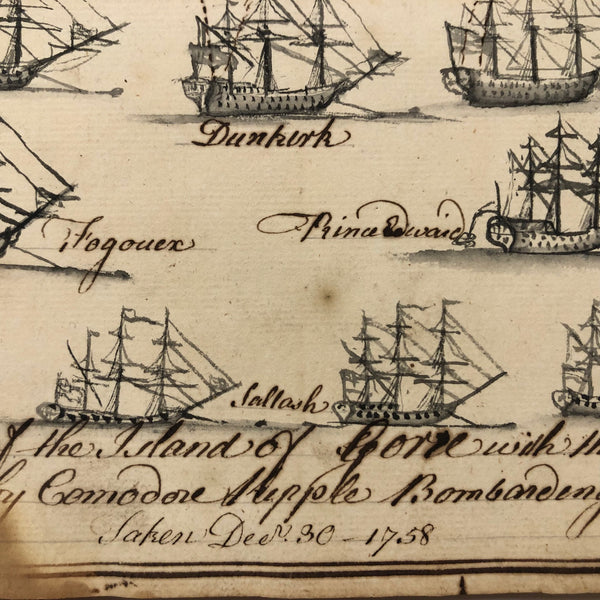 Dunkerk
Fogouex
Prince Edward
Sallash
of the Island of Goree with th
by Comodore Kepple Bombarding
Taken Decr. 30 - 1758